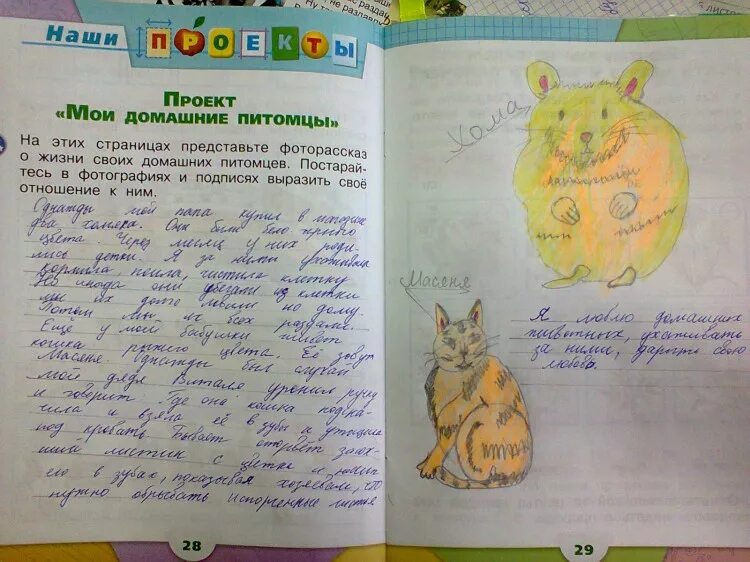 Наши ПРОЕКТЫ
Проект
«Мои домашние питомцы»
На этих страницах представьте фоторассказ
о жизни своих домашних питомцев. Постарай-
тесь в фотографиях и подписях выразить своё
отношение к ним.
Однажды мой папа купил в магазине
два хомяка. Они были бело
цвета. Через месяц у них роди-
лись детки. Я за ними ухаживала
кормила, поила, чистила клетку
Но иногда они убегали из клетки
мы их долго ловили по дому.
Потом мы их всех раздали.
Ещё у моей бабушки живёт
кошка рыжего цвета. Её зовут
Масеня. Однажды был случай
мой дядя Виталя уронил ручку
и говорит: Где она? кошка подска-
чила и взяла её в зубы и утащила
под кровать. Бывает оторвёт засох-
ший листик с цветка и
его в зубах, показывая хозяевам, что
нужно обрывать испорченные листья
28
Хома
Масеня
Я люблю домашних
животных, ухаживать
за ними, дарить свою
любовь.
29